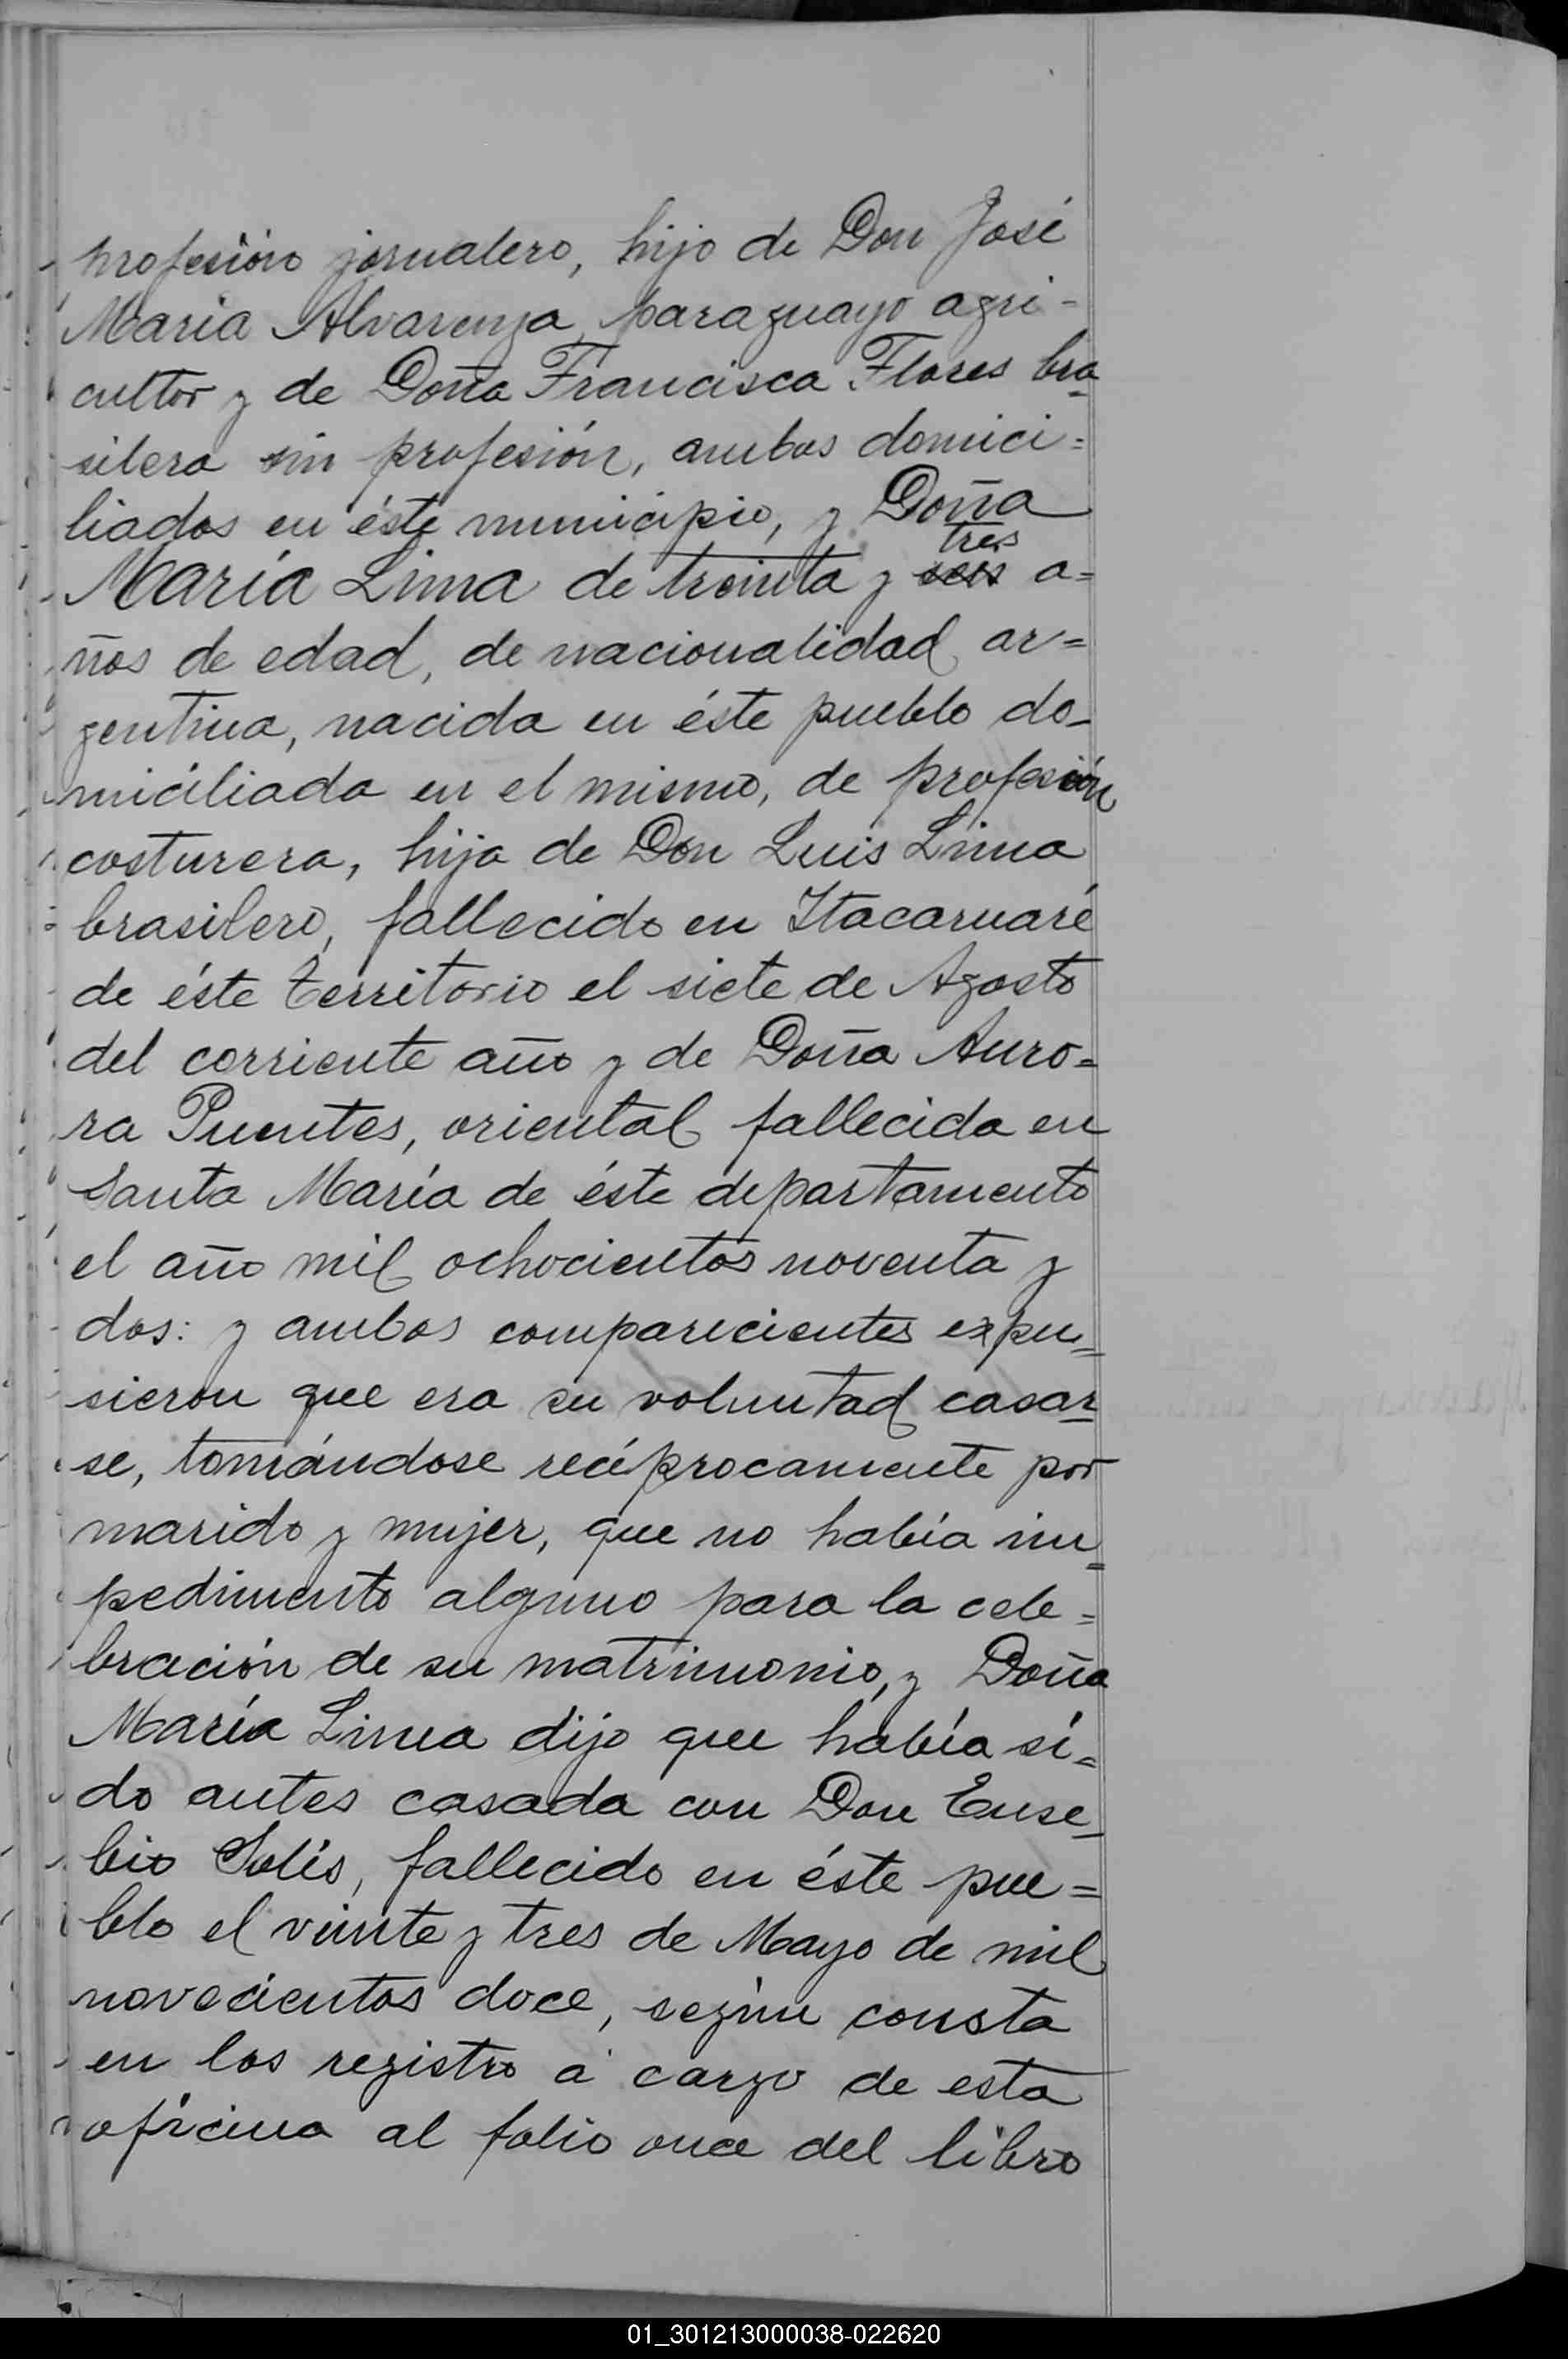 profesión jornalero, hijo de Don José
Maria Alvarenga, paraguayo agri-
cultor y de Doña Francisca Flores bra-
silera sin profesión, ambos domici=
liados en éste municipio, y Doña
tres
María Lima de treinta y seis a=
ños de edad, de nacionalidad ar=
gentina, nacida en éste pueblo do-
miciliada en el mismo, de profesión
costurera, hija de Don Luis Lima
brasilero, fallecido en Itacaruaré
de éste territorio el siete de Agosto
del corriente año y de Doña Auro=
ra Puentes, oriental fallecida en
Santa María de éste departamento
el año mil ochocientos noventa y
dos: y ambos comparecientes expu=
sieron que era su voluntad casar-
se, tomándose recíprocamente por
marido y mujer, que no había im=
pedimento alguno para la cele=
bración de su matrimonio, y Doña
María Lima dijo que había si=
do antes casada con Don Euse-
bio Solís, fallecido en éste pue=
blo el veinte y tres de Mayo de mil
novecientos doce, según consta
en los registro á cargo de esta
oficina al folio once del libro
01_301213000038-022620